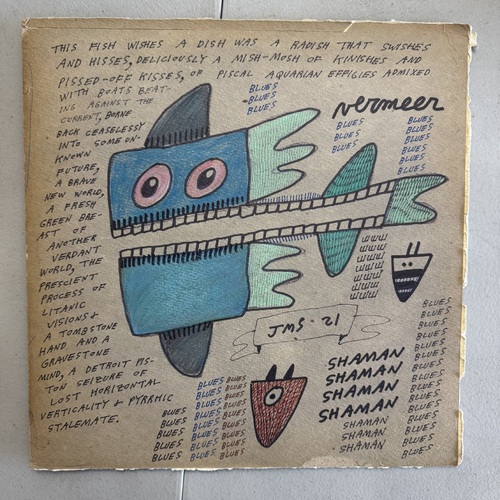 THIS FISH WISHES A DISH WAS A RADISH THAT SWISHES
AND HISSES, DELICIOUSLY A MISH-MOSH OF KINISHES AND
PISSED-OFF KISSES, OF PISCAL AQUARIAN EFFIGIES ADMIXED
WITH BOATS BEAT-
ING AGAINST THE
CURRENT, BORNE
BACK CEASELESSLY
INTO SOME UN-
KNOWN
FUTURE,
A BRAVE
NEW WORLD,
A FRESH
GREEN BRE-
AST OF
ANOTHER
VERDANT
WORLD, THE
PRESCIENT
PROCESS OF
LITANIC
VISIONS &
A TOMBSTONE
HAND AND A
GRAVESTONE
MIND, A DETROIT PIS-
TON SEIZURE OF
LOST HORIZONTAL
VERTICALITY & PYRRHIC
STALEMATE.
BLUES
-BLUES
BLUES
vermeer
BLUES
BLUES
BLUES
BLUES
BLUES
BLUES
BLUES
BLUES
BLUES
JMS-21
SHAMAN
SHAMAN
SHAMAN
SHAMAN
SHAMAN
SHAMAN
SHAMAN
BLUES
BLUES
BLUES
BLUES
BLUES
BLUES
BLUES
BLUES
BLUES
BLUES
BLUES
BLUES BLUES
BLUES BLUES
BLUES BLUES
BLUES BLUES BLUES
BLUES BLUES BLUES
BLUES BLUES BLUES
BLUES BLUES BLUES
BLUES BLUES BLUES